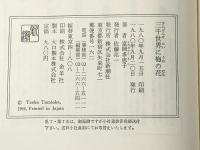 三千世界に梅の花
一九八〇年九月一五日 印刷
一九八〇年九月二〇日 発行
著者 富岡多恵子
発行者 佐藤亮一
発行所 株式会社新潮社
東京都新宿区矢来町七一
郵便番号一六二
電話
振替 東京
印刷 株式会社 金羊社
製本 大口製本株式会社
定価
© Taeko Tomioka,
1980, Printed in Japan
乱丁・落丁本は、御面倒ですが小社通信係宛御送付
下さい。送料小社負担にてお取替えいたします。